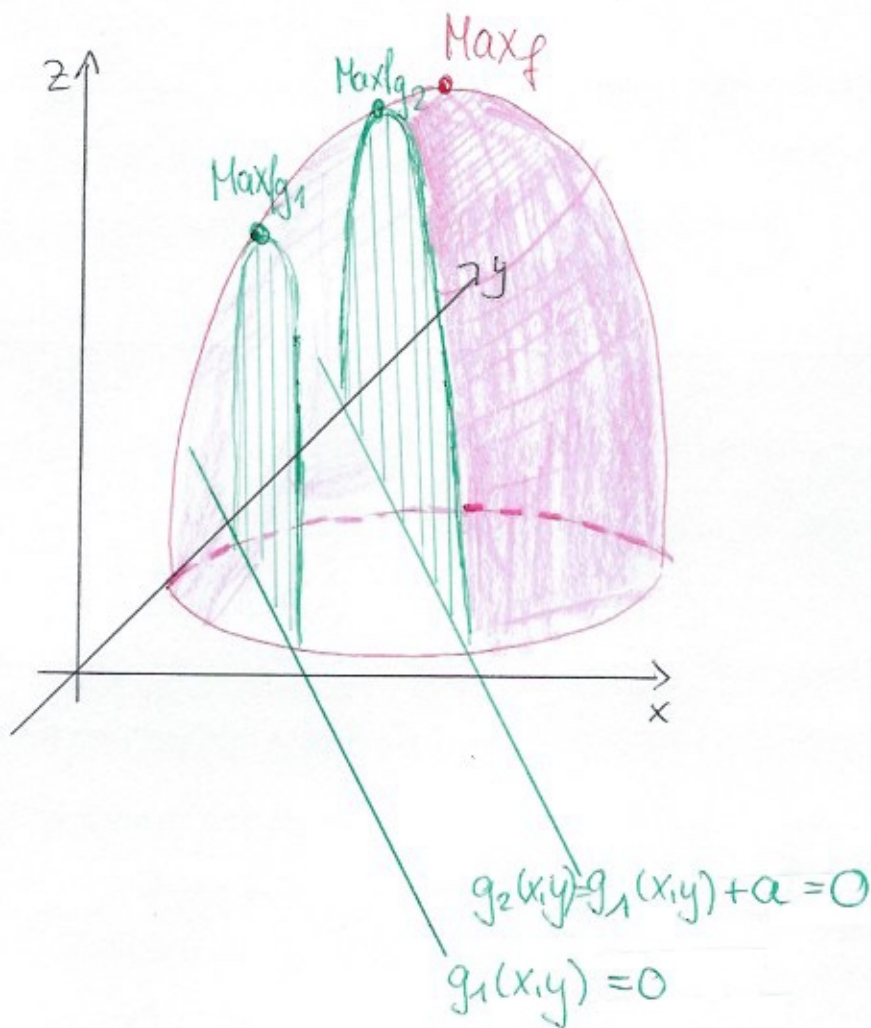 Max f
Max|g2
Z
Max|g1
y
x
g2(x,y)=g1(x,y)+a=0
g1(x,y)=0